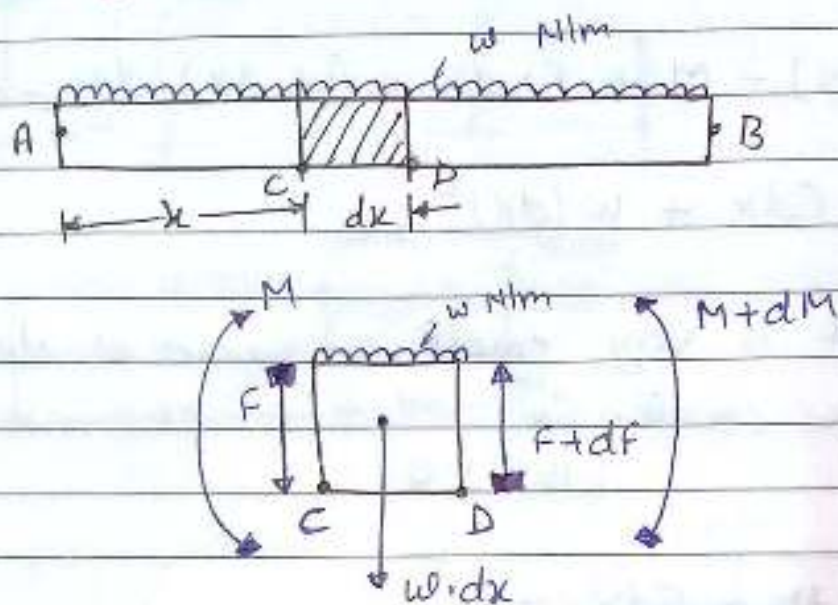 w N/m
A
B
C
D
x
dx
M
w N/m
M+dM
F
F+dF
C
D
w.dx